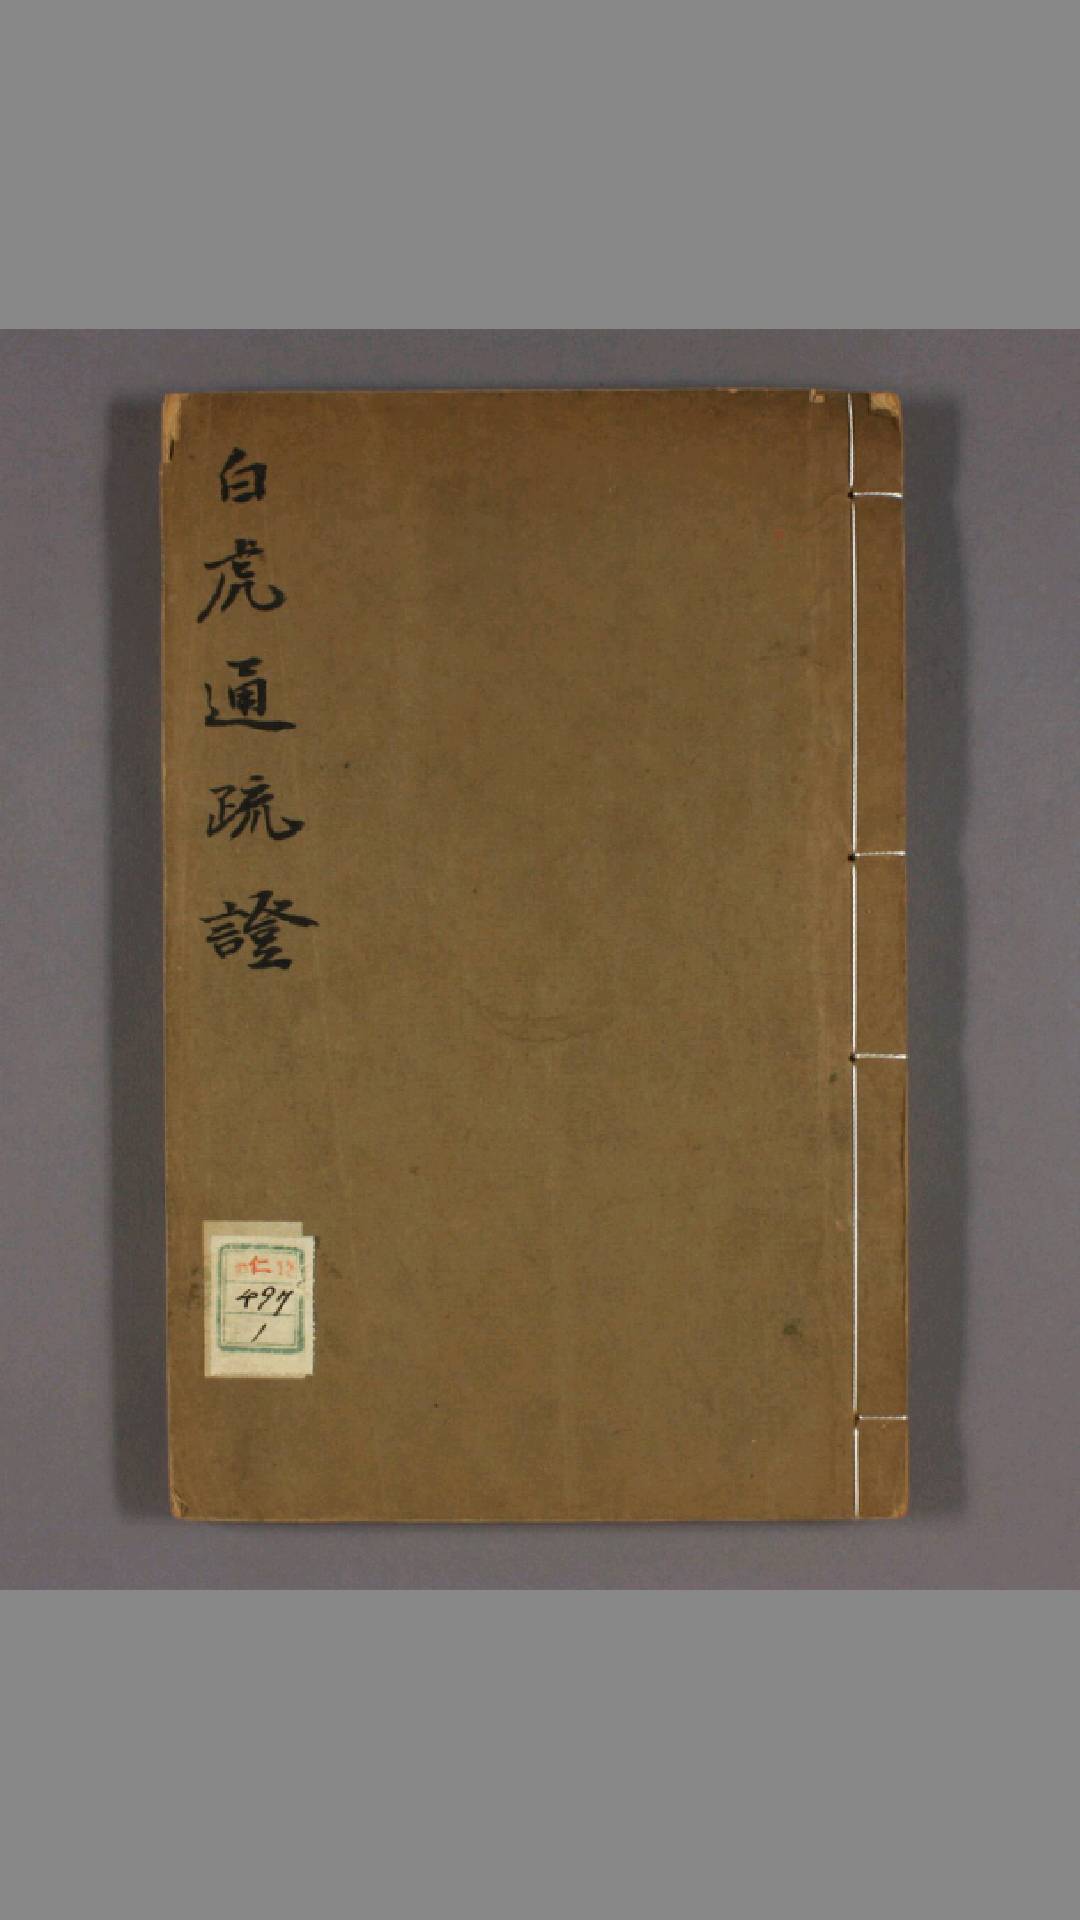 白虎通疏證
仁 12
497
1